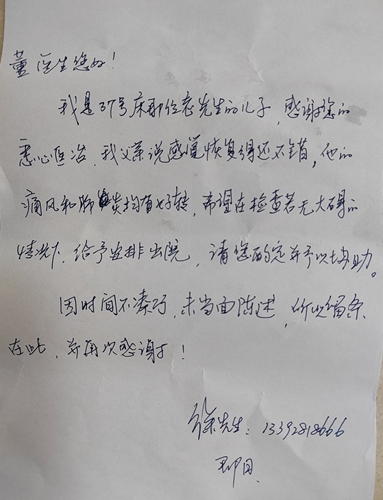 董医生您好!
我是37号床那位老先生的儿子,感谢您的
悉心医治,我父亲说感觉恢复得还不错,他的
痛风和肺炎均有好转,希望在检查若无大碍的
情况下,给予安排出院,请您酌定并予以协助。
因时间不凑巧,未当面陈述,所以留条
在此,并再次感谢!
徐先生:13392818666
即日